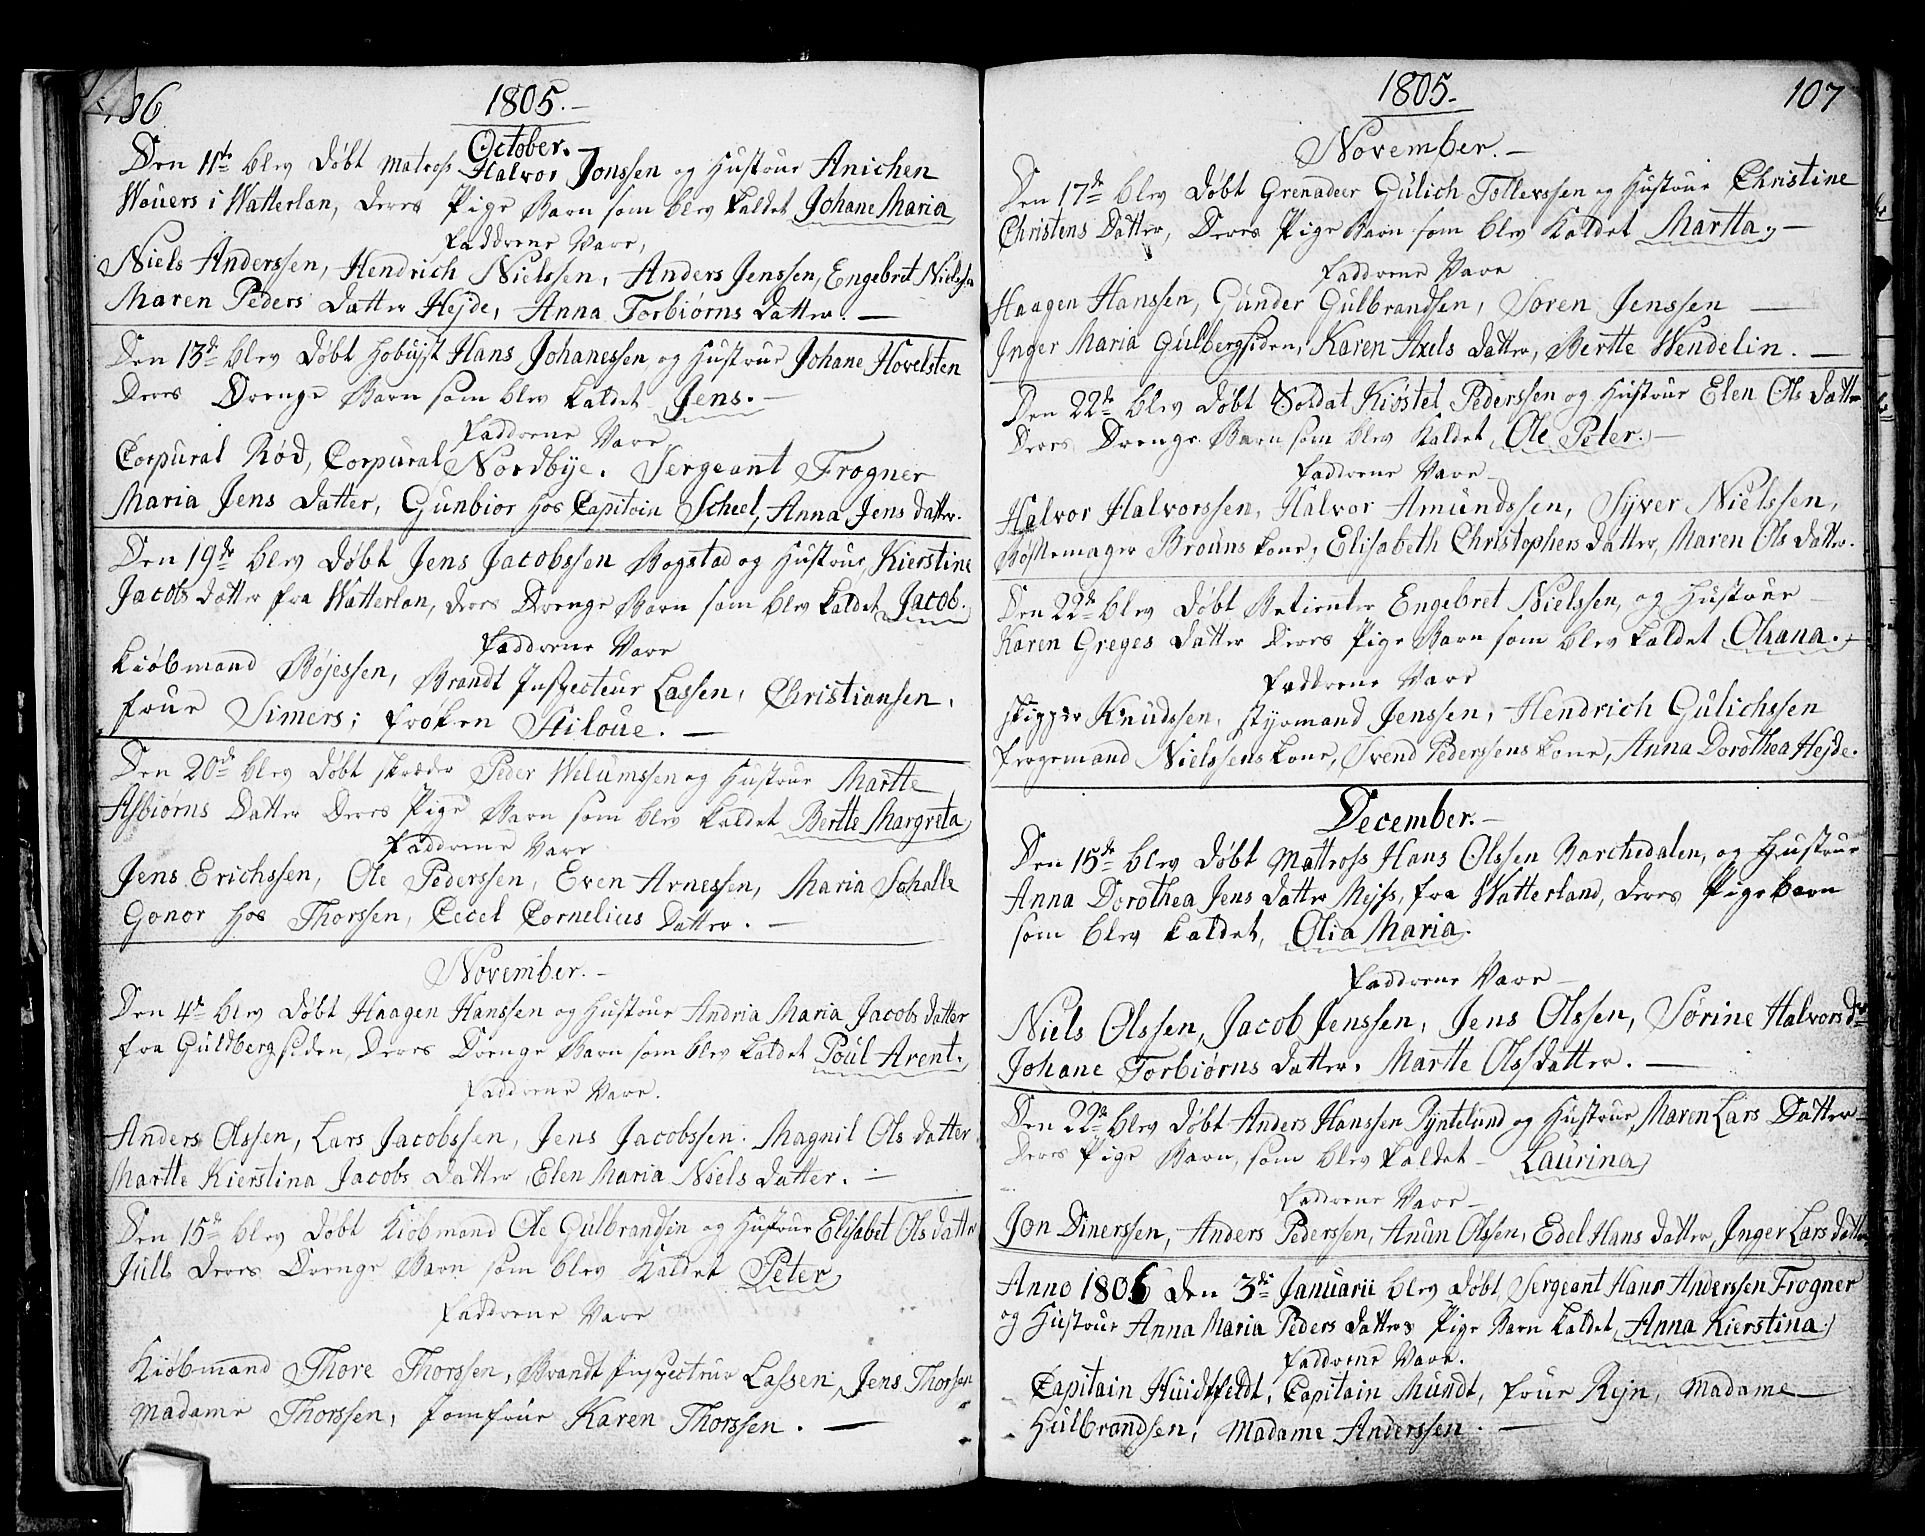 106
1805.
October.
Den 11te blev Døbt Matros Halvor Jonssen og Hustrue Anichen
Wouers i Watterlan, deres Pige Barn som blev kaldet Johane Maria
Fadderne Vare,
Niels Anderssen, Hendrich Nielssen, Anders Jenssen, Engebret Nielssen
Maren Peders Datter Hejde, Anna Torbiørns Datter. —
Den 13de blev Døbt Hans Johanessen, og Hustrue Johane Hovelsten
Deres Drenge Barn som blev kaldet Jens. —
Fadderne Vare,
Corpural Rød, Corpural Nordbye. Sergeant Frogner
Maria Jens Datter, Gunbior hos Capitain Scheel, Anna Jens Datter.
Den 19de blev Døbt Jens Jacobssen Bogstad og Hustrue, Kierstine
Jacobs Datter fra Watterlan, deres Drenge Barn som blev kaldet Jacob.
Fadderne Vare
Kiøbmand Bøjessen, Brandt Inspecteur Lassen, Christiansen,
Frue Simers; Frøken Stiloue. —
Den 20de blev Døbt Peder Welumssen og Hustrue Martte
Asbiørns Datter Deres Pige Barn som blev kaldet Bertte Margreta
Fadderne Vare
Jens Erichssen, Ole Pederssen, Even Arnessen, Maria Schalle
Gonor hos Thorssen, Cecel Cornelius Datter. —
November. —
Den 4de blev Døbt Haagen Hanssen og Hustrue Andria Maria Jacobs Datter
fra Guldbergsiden, Deres Drenge Barn som blev kaldet Poul Arent.
Fadderne Vare.
Anders Olssen, Lars Jacobssen, Jens Jacobssen. Magnil Ols Datter
Martte Kierstina Jacobs Datter, Elen Maria Niels Datter. —
Den 15de blev Døbt Kiøbmand Ole Gulbrandsen og Hustrue Elisabet Ols Datter
Jull Deres Drenge Barn som blev Kaldet Peter
Fadderne Vare
Kiøbmand Thore Thorssen, Brandt Inspecteur Lassen, Jens Thorssen
Madame Thorssen, Jomfrue Karen Thorssen. —
1805.
107
November. —
Den 17de blev Døbt Grenadeer Gulich Tollevssen og Hustrue Christine
Christens Datter, Deres Pige Barn som blev Kaldet Martta. —
Fadderne Vare
Haagen Hanssen, Gunder Gulbrandsen, Soren Jenssen —
Inger Maria Gulbergsiden, Karen Axels Datter, Bertte Wendelin. —
Den 22de blev Døbt Soldat Kiøstel Pederssen og Hustrue Elen Ols Datter
Deres Drenge Barn som blev Kaldet, Ole Peter. —
Fadderne Vare —
Halvor Halvorssen, Halvor Amundssen, Syver Nielssen,
Brouns kone, Elisabeth Christophers Datter, Maren Ols Datter.
Den 22de blev Døbt Betienter Engebret Nielssen, og Hustrue —
Karen Greges Datter Deres Pige Barn som blev kaldet Olrana. —
Fadderne Vare
skipper Knudssen, styrmand Jenssen, Hendrich Gulichssen
Nielssens kone, Svend Pederssens kone, Anna Dorothea Hejde.
December. —
Den 15de blev Døbt Mattross Hans Olssen Barchedalen, og Hustrue
Anna Dorothea Jens Datter Mejss, fra Watterland, deres Pige barn
som blev kaldet, Olia Maria.
Fadderne Vare —
Niels Olssen, Jacob Jenssen, Jens Olssen, Sørine Halvors Dr
Johane Torbiørns Datter. Martte Olsdatter. —
Den 22de blev Døbt Anders Hanssen Pyntelund og Hustrue, Maren Lars Datter
Deres Pige Barn, som blev kaldet — Laurina
Fadderne Vare —
Jon Dinerssen, Anders Pederssen, Anun Olssen, Edel Hans Datter, Inger Lars Datter
Anno 1806 den 3de Januarii blev Døbt, Sergeant Hans Anderssen Frogner
og Hustrue Anna Maria Peders Datters Pige Barn kaldet, Anna Kierstina.
Fadderne Vare.
Capitain Huidtfeldt, Capitain Mundt, Frue Rejn, Madame —
Hulbrandsen, Madame Anderssen. —